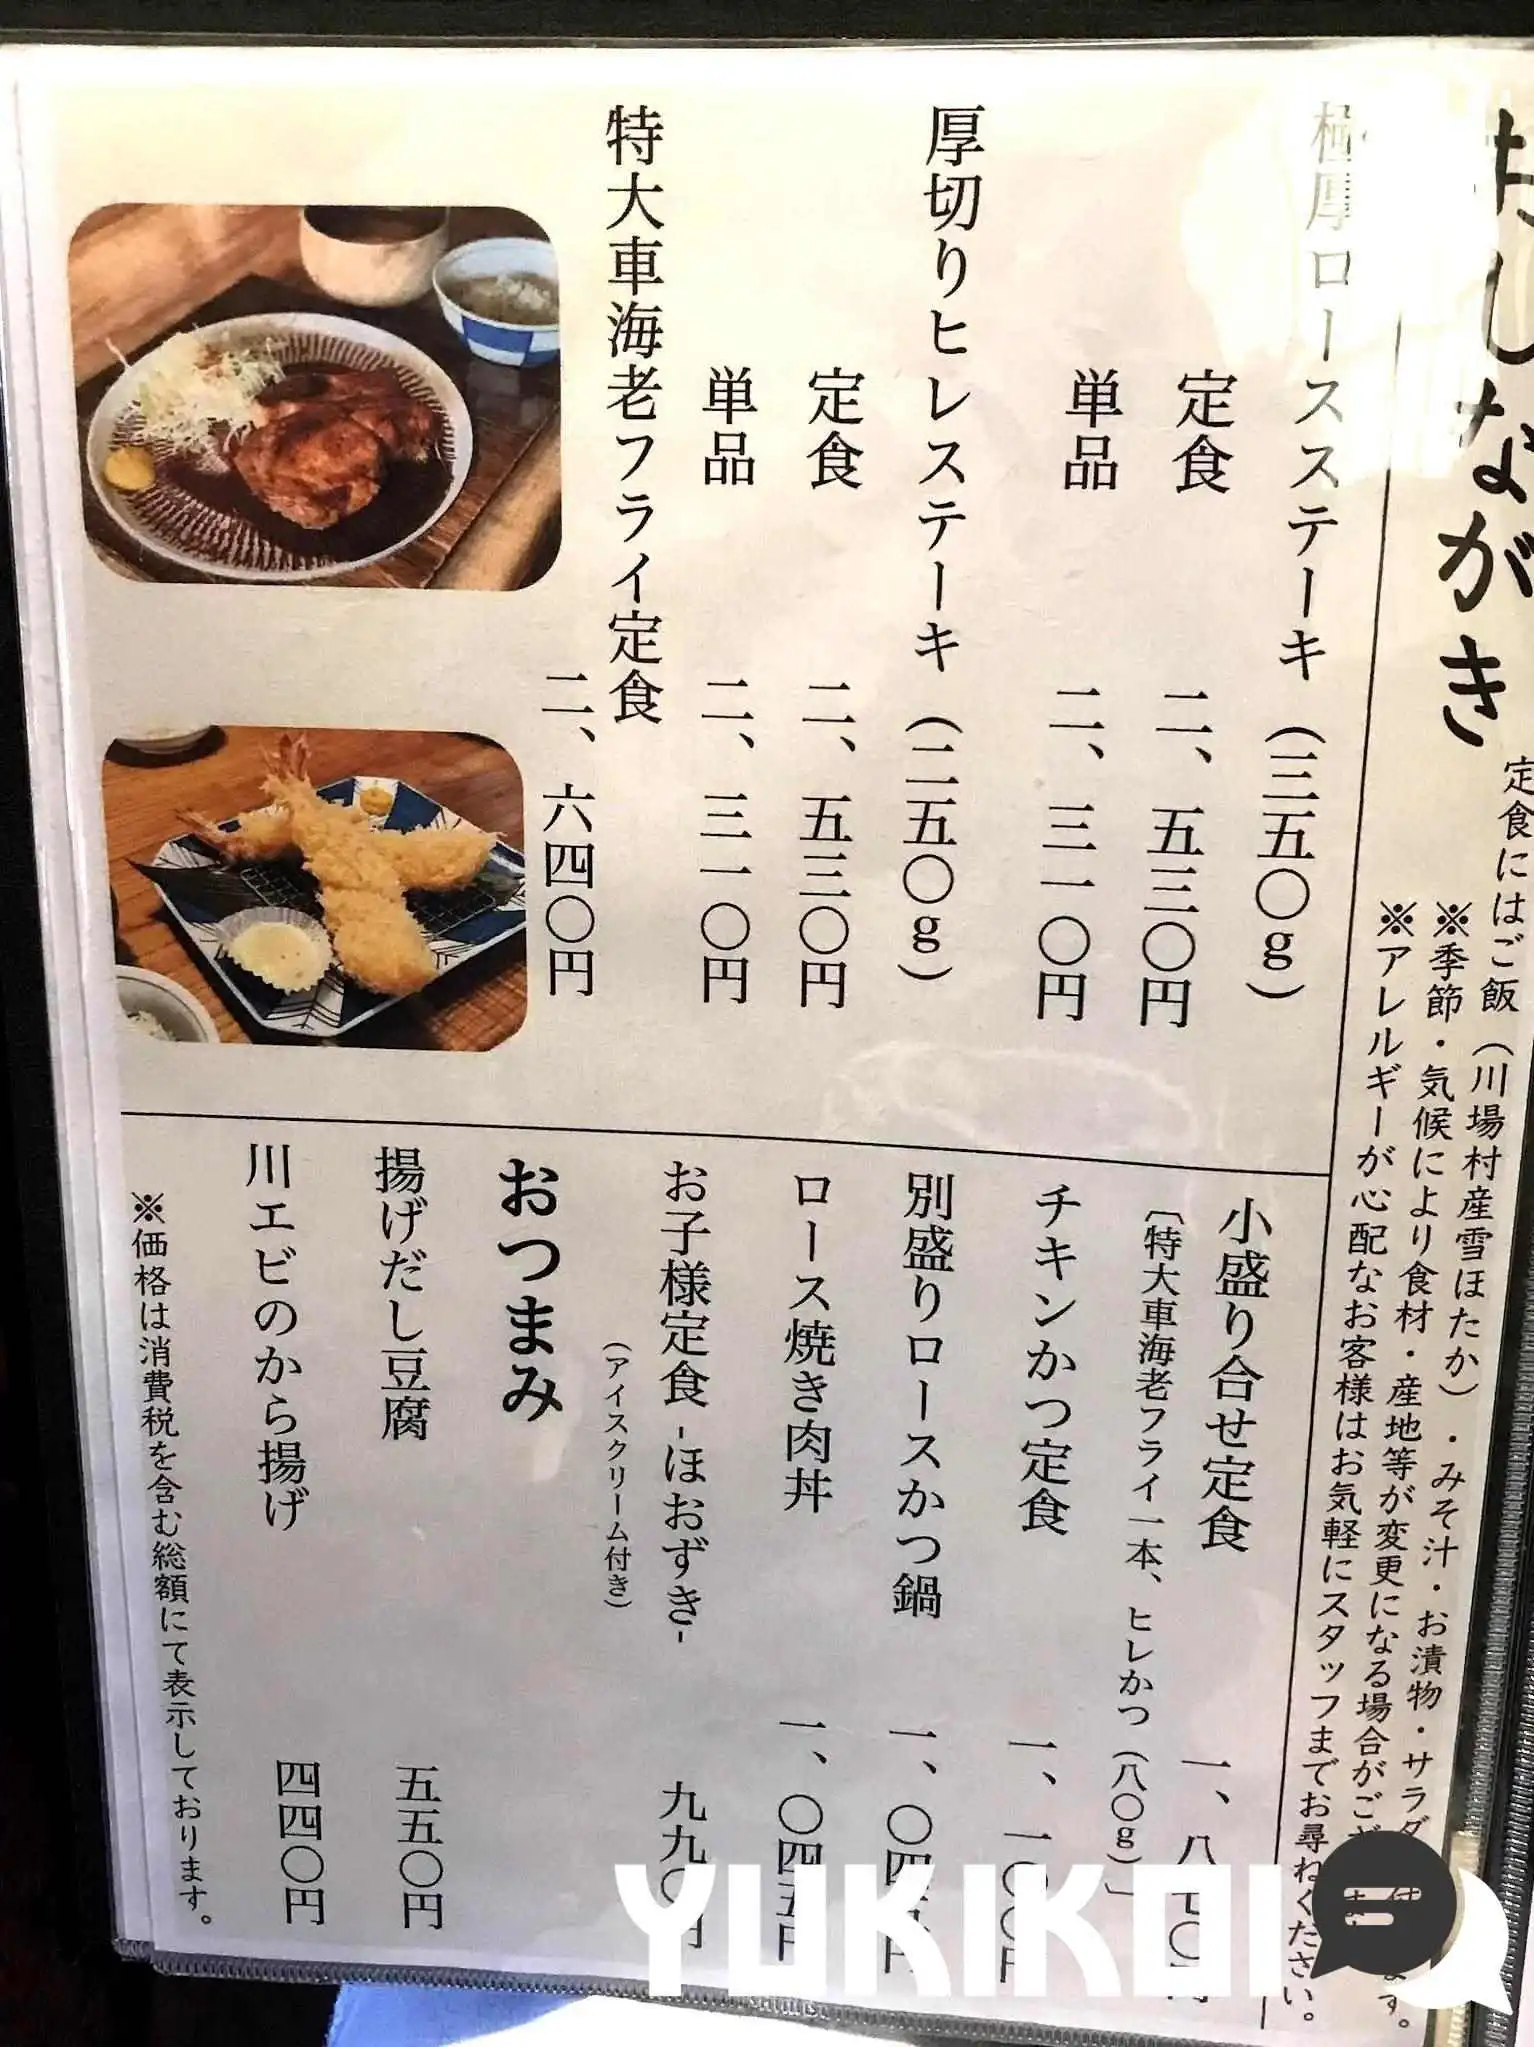 おしながき
定食にはご飯（川場村産雪ほたか）・みそ汁・お漬物・サラダ
※季節・気候により食材・産地等が変更になる場合がござ
※アレルギーが心配なお客様はお気軽にスタッフまでお尋ねください。
極厚ロースステーキ（三五〇g）
定食 二、五三〇円
単品 二、三一〇円
厚切りヒレステーキ（二五〇g）
定食 二、五三〇円
単品 二、三一〇円
特大車海老フライ定食
二、六四〇円
小盛り合せ定食 一、八七〇円
〔特大車海老フライ一本、ヒレかつ（八〇g）〕
チキンかつ定食 一、一〇〇円
別盛りロースかつ鍋 一、〇四五円
ロース焼き肉丼 一、〇四五円
お子様定食 -ほおずき- 九九〇円
（アイスクリーム付き）
おつまみ
揚げだし豆腐 五五〇円
川エビのから揚げ 四四〇円
※価格は消費税を含む総額にて表示しております。
YUKIKOI